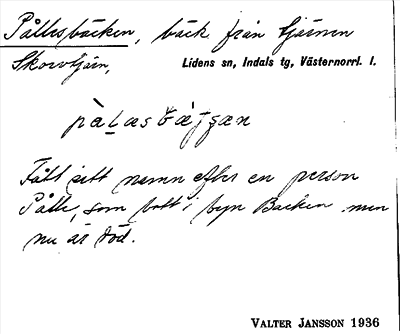 Pållesbäcken, bäck från tjärnen
Skorvtjärn, Lidens sn, Indals tg, Västernorrl. l.
Fått sitt namn efter en person
Pålle, som bott i byn Backen men
nu är död.
VALTER JANSSON 1936